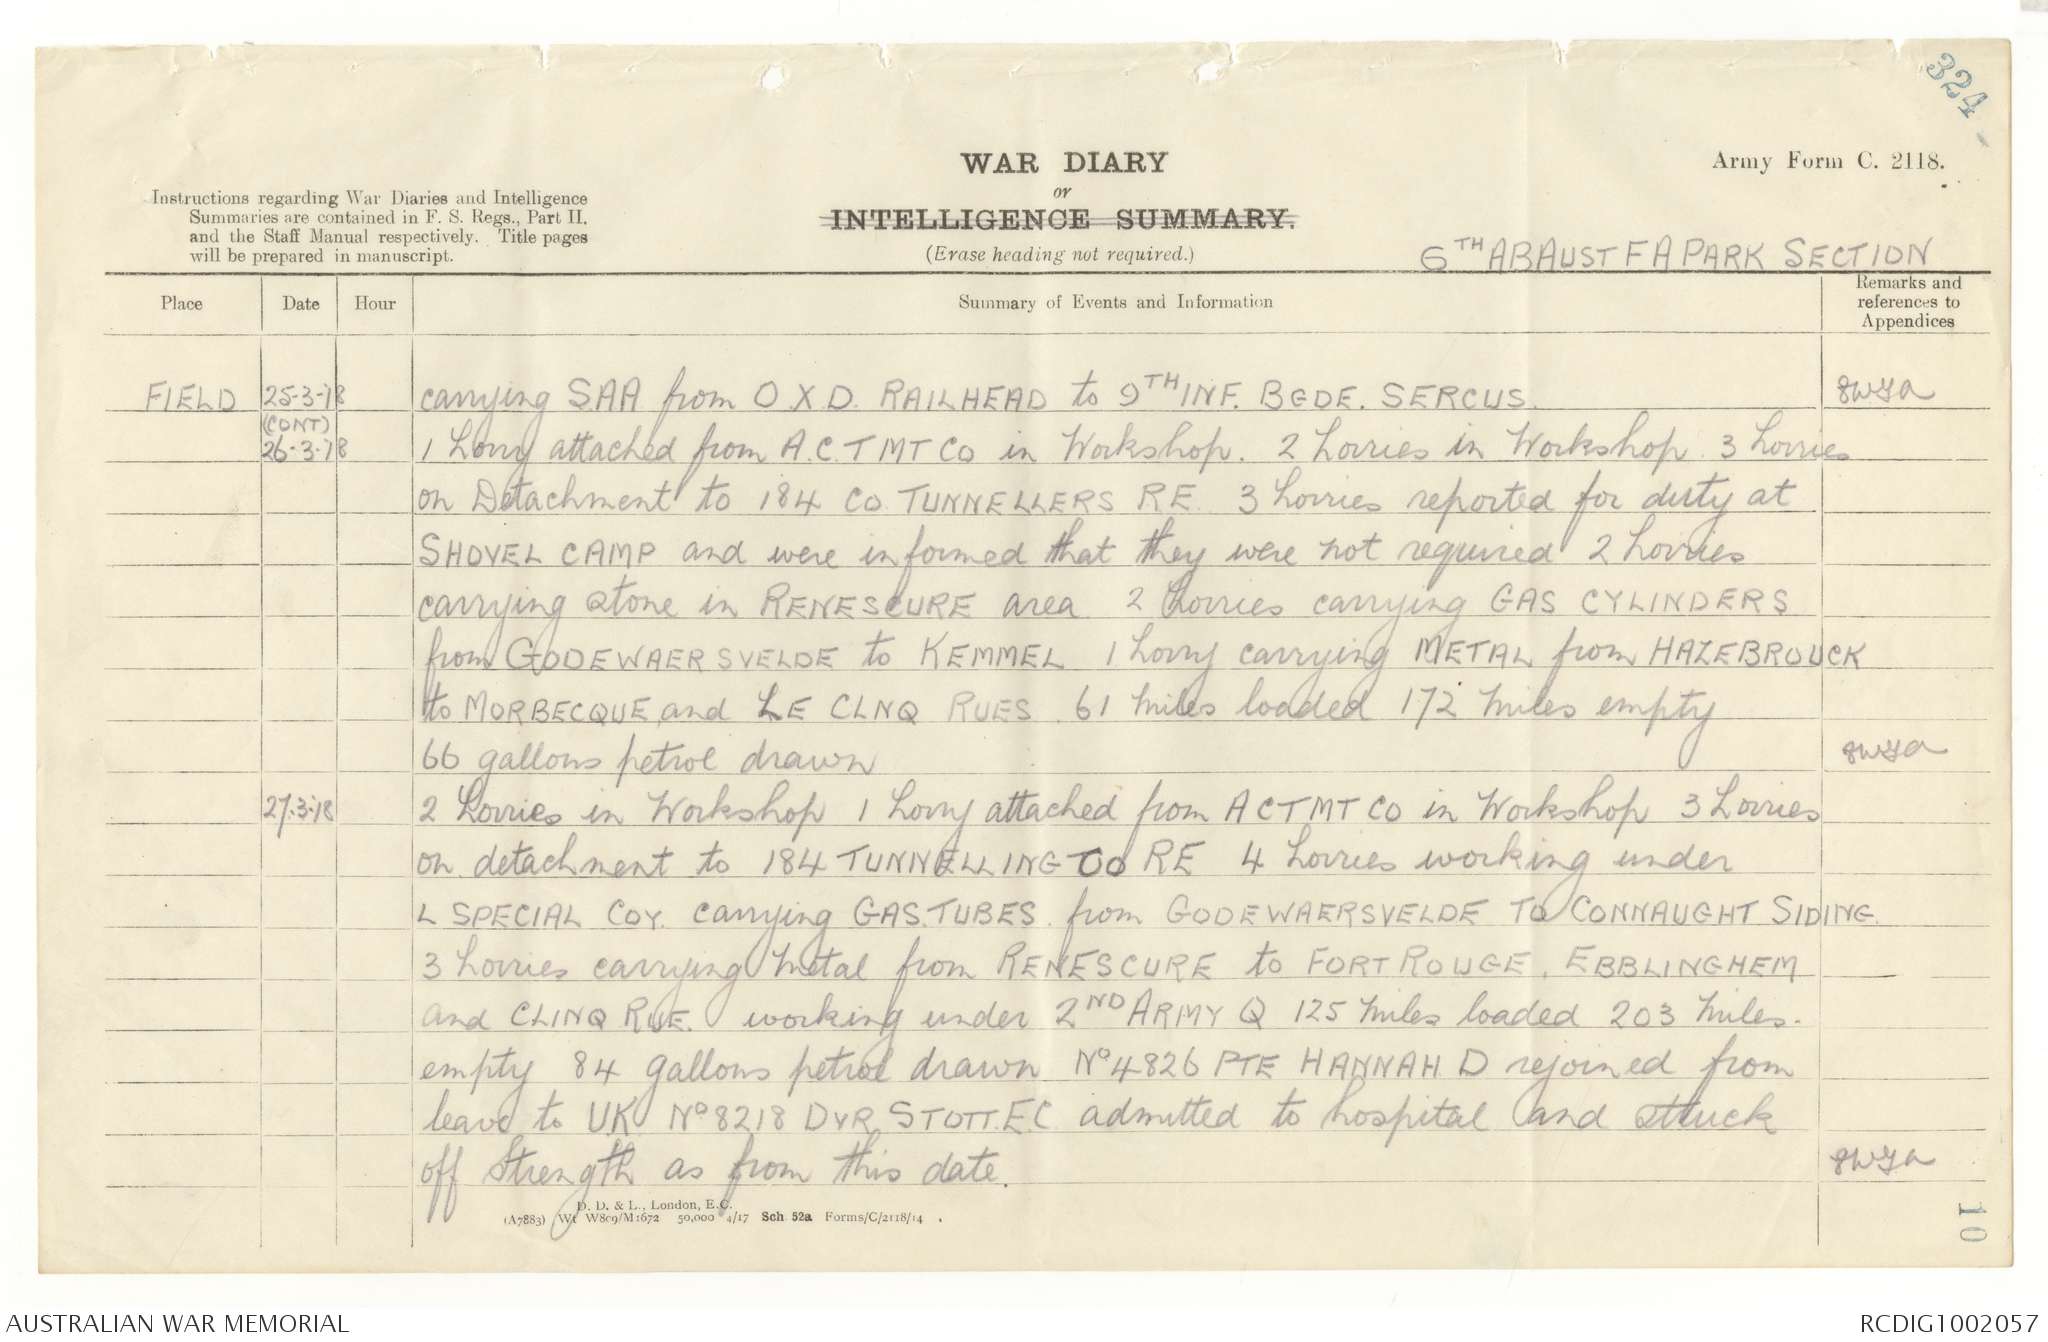 324
WAR DIARY
or
INTELLIGENCE SUMMARY.
(Erase heading not required.)
Army Form C. 2118.
Instructions regarding War Diaries and Intelligence
Summaries are contained in F. S. Regs., Part II.
and the Staff Manual respectively. Title pages
will be prepared in manuscript.
6TH ABAUST F A PARK SECTION
Place Date Hour Summary of Events and Information Remarks and references to Appendices
FIELD 25-3-18 carrying SAA from O X D. RAILHEAD to 9TH INF. BGDE. SERCUS.
(CONT)
26-3-18 1 Lorry attached from A.C.T MT CO in Workshop. 2 Lorries in Workshop. 3 Lorries
on Detachment to 184 CO. TUNNELLERS RE. 3 Lorries reported for duty at
SHOVEL CAMP and were informed that they were not required 2 Lorries
carrying stone in RENESCURE area. 2 Lorries carrying GAS CYLINDERS
from GODEWAERSVELDE to KEMMEL 1 Lorry carrying METAL from HAZEBROUCK
to MORBECQUE and LE CLNQ RUES. 61 miles loaded 172 miles empty
66 gallons petrol drawn
27.3.18 2 Lorries in Workshop 1 Lorry attached from A C T MT CO in Workshop 3 Lorries
on detachment to 184 TUNNELLING CO RE 4 Lorries working under
L SPECIAL COY. carrying GAS.TUBES. from GODEWAERSVELDE TO CONNAUGHT SIDING.
3 Lorries carrying metal from RENESCURE to FORT ROUGE, EBBLINGHEM
and CLINQ RUE. working under 2ND ARMY Q 125 miles loaded 203 miles.
empty 84 gallons petrol drawn No 4826 PTE HANNAH D rejoined from
leave to UK No 8218 DVR. STOTT. E C admitted to hospital and struck
off Strength as from this date.
D. D. & L., London, E.C.
(A7883) Wt W809/M1672 50,000 4/17 Sch 52a Forms/C/2118/14
10
AUSTRALIAN WAR MEMORIAL RCDIG1002057